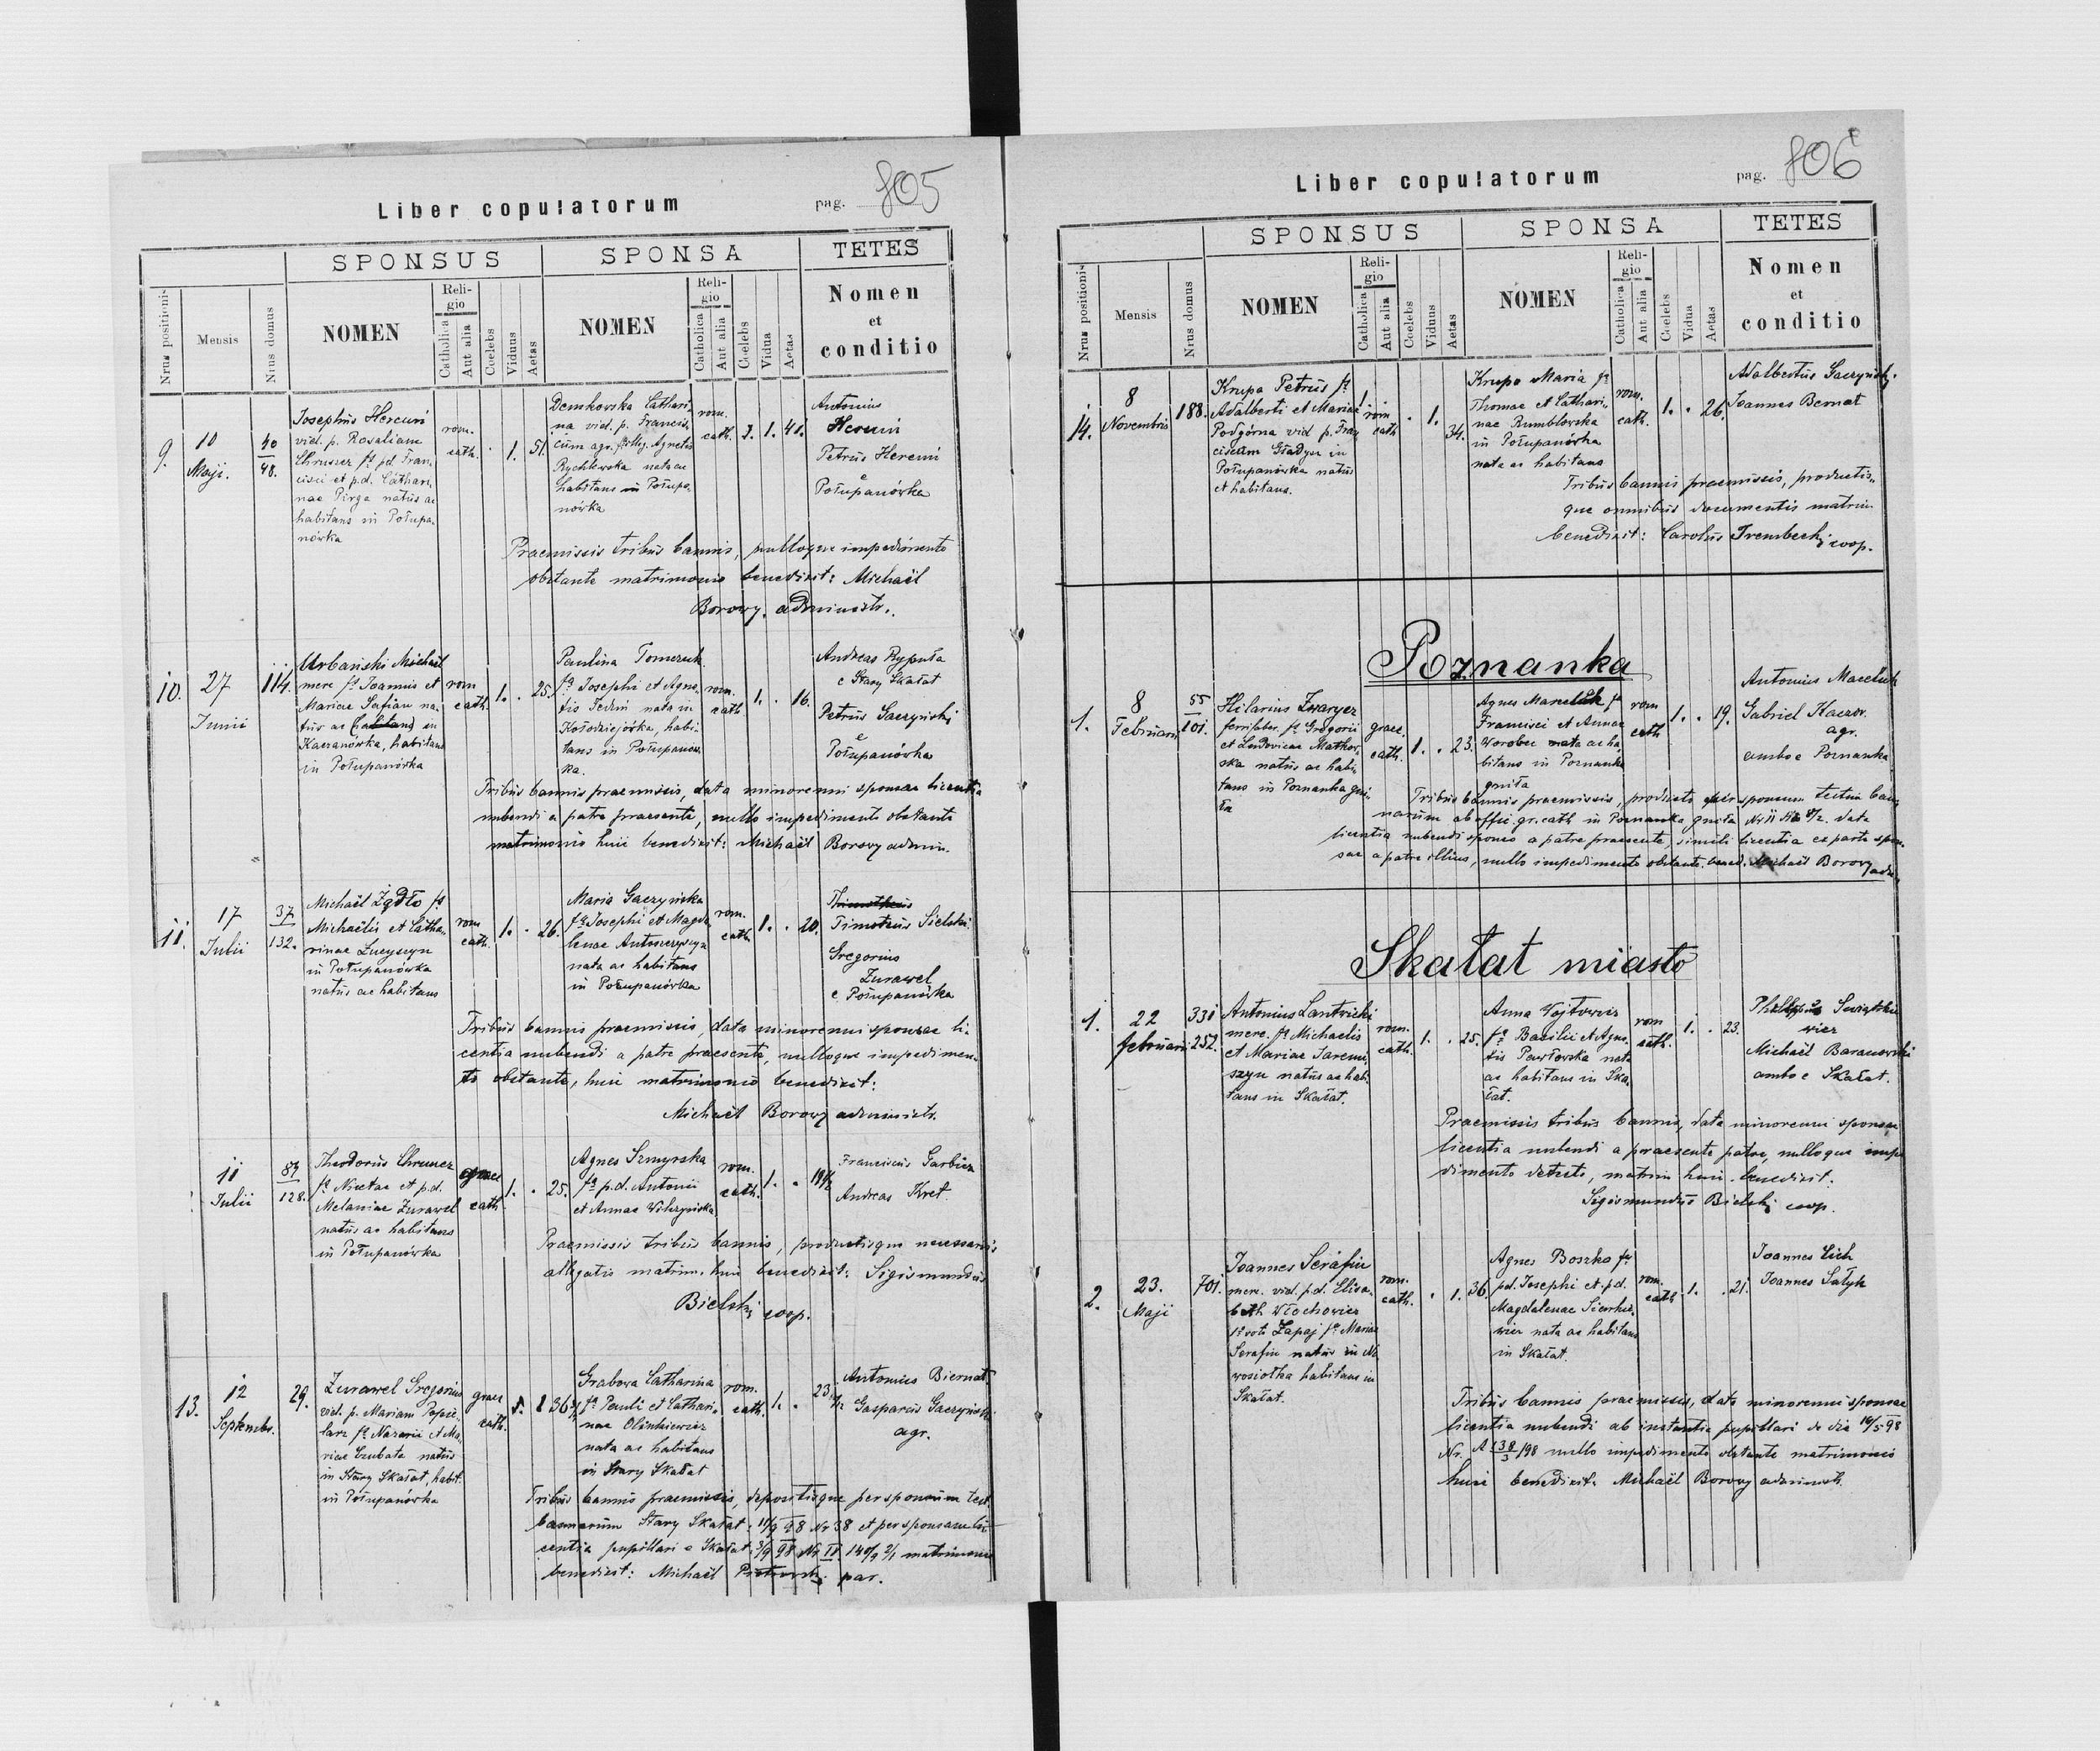 Liber copulatorum
pag. 805
SPONSUS
SPONSA
TETES
Nrus positionis
Mensis
Nrus domus
NOMEN
Reli-
gio
Catholica
Aut alia
Coelebs
Viduus
Aetas
NOMEN
Reli-
gio
Catholica
Aut alia
Coelebs
Vidua
Aetas
Nomen
et
conditio
9.
10
Maji.
40
48.
Josephus Hercuń
vid. p. Rosaliam
Chruszcz fs pd. Fran
cisci et p.d. Cathari
nae Pirga natus ac
habitans in Połupa
nówka
rom.
cath.
1.
51.
Demkowska Cathari
na vid. p. Francis
cum agr. Agnetis
Rychlewska nata ac
habitans in Połupa
nówka
rom.
cath.
1.
41.
Antonius
Hercuń
Petrus Hereni
e
Połupanówka
Praemissis tribus bannis, nulloque impedimento
obstante matrimonio benedixit: Michaël
Borowy. administr.
10.
27
Junii
114.
Urbański Michaël
merc fs Joannis et
Mariae Safian na
tus ac habitans in
Kaczanówka, habitans
in Połupanówka
rom
cath.
1.
25.
Paulina Tomczuk
fa Josephi et Agne
tis nata in
Kołodziejówka, habi
tans in Połupanów
ka.
rom.
cath
1.
16.
Andreas Ryputa
e Stary Skałat
Petrus Gaczyński
e
Połupanówka
Tribus bannis praemissis, data minorenni sponsae licentia
nubendi a patre praesente, nullo impedimento obstante
matrimonio huic benedixit: Michaël Borowy admin.
11.
17
Julii
37
132.
Michaël Żądło fs
Michaëlis et Catha
rinae
in Połupanówka
natus ac habitans
rom
cath.
1.
26.
Maria Gaczyńska
fa Josephi et Magda
lenae Antoszczyszyn
nata ac habitans
in Połupanówka
rom.
cath.
1.
20.
Timoteus Sielski
Gregorius
Żurawel
e Połupanówka
Tribus bannis praemissis, data minorenni sponsae li
centia nubendi a patre praesente, nulloque impedimen
to obstante, huic matrimonio benedixit:
Michaël Borowy administr.
11
Julii
128.
Theodorus Chruszcz
fs Nicetae et p.d.
Melaniae Żurawel
natus ac habitans
in Połupanówka
graec
cath
1.
25.
Agnes Szmyrska
fa p.d. Antonii
et Annae Wilczyńska
rom.
cath.
1.
19½
Franciscus Garbicz
Andreas Kret.
Praemissis tribus bannis, productisque necessariis
allegatis matrim. huic benedixit: Sigismundus
Bielski coop.
13.
12
Septembr.
29.
Żurawel Gregorius
vid. p. Mariam Popie
larz fs Nazarii et Ma
riae Czubata natus
in Stary Skałat, habit.
in Połupanówka
graec
cath.
1
36½
Grabowa Catharina
fa Pauli et Cathari
nae Olinkiewicz
nata ac habitans
in Stary Skałat
rom.
cath.
1.
23
½
Antonius Biernat
Gasparus Gaczyński
agr.
Tribus bannis praemissis, depositisque per sponsum test.
bannorum Stary Skałat 11/9 98 Nr 38 et per sponsam li
centia pupillari e Skałat 3/9 98 Nr IV 140/9 2/1 matrimonio
benedixit: Michaël Piotrowski par.
Liber copulatorum
pag. 806
SPONSUS
SPONSA
TETES
Nrus positionis
Mensis
Nrus domus
NOMEN
Reli-
gio
Catholica
Aut alia
Coelebs
Viduus
Aetas
NOMEN
Reli-
gio
Catholica
Aut alia
Coelebs
Vidua
Aetas
Nomen
et
conditio
14.
8
Novembris
188.
Krupa Petrus fs
Adalberti et Mariae
Podgórna vid p. Fran
ciscam Gładysz in
Połupanówka natus
et habitans.
rom
cath
1.
34.
Krupa Maria fa
Thomae et Cathari
nae Rumblowska
in Połupanówka
nata ac habitans
rom.
cath.
1.
26.
Adalbertus Gaczyński
Joannes Bernat
Tribus bannis praemissis, productis
que omnibus documentis matrim
benedixit: Carolus Trembecki coop.
Poznanka
1.
8
Februarii
55
101.
Hilarius Zwarycz
ferrifaber. fs Gregorii
et Ludovicae Matkow
ska natus ac habi
tans in Poznanka gni
ła
graec.
cath.
1.
23.
Agnes Marceluk fa
Francisci et Annae
Worobec nata ac ha
bitans in Poznanka
gniła
rom
cath
1.
19.
Antonius Maceluk
Gabriel Kaczor.
agr.
ambo e Poznanka
Tribus bannis praemissis, producto per sponsum testim ban
norum ab offic. gr. cath in Poznanka gniła Nr 11 8/2. data
licentia nubendi sponso a patre praesente, simili licentia ex parte spon
sae a patre illius, nullo impedimento obstante bened. Michaël Borowy adm
Skałat miasto
1.
22
februarii
331
252.
Antonius Lantwicki
merc. fs Michaelis
et Mariae Jaremi
szyn natus ac habi
tans in Skałat.
rom.
cath.
1.
25.
Anna Wojtowicz
fa Basilii et Agne
tis Pawłowska nata
ac habitans in Ska
łat.
rom
cath.
1.
23.
Philippus Swiątkie
wicz
Michaël Baranowski
ambo e Skałat.
Praemissis tribus bannis, data minorenni sponsae
licentia nubendi a praesente patre, nulloque impe
dimento detecto, matrim huic benedixit.
Sigismundus Bielski coop.
2.
23.
Maji
701.
Joannes Serafin
merc. vid. p.d. Elisa
beth Włochowicz
1o voto Zapaj fs Mariae
Serafin natus in No
wosiołka habitans in
Skałat.
rom.
cath.
1.
36.
Agnes Boszko fa
pd. Josephi et p.d.
Magdalenae Sienkie
wicz nata ac habitans
in Skałat.
rom.
cath
1.
21.
Joannes Cich
Joannes Sałyk
Tribus bannis praemissis, data minorenni sponsae
licentia nubendi ab instantia pupillari de die 14/5 98
Nr. A 138/3 /98 nullo impedimento obstante matrimonio
huic benedixit. Michaël Borowy administr.